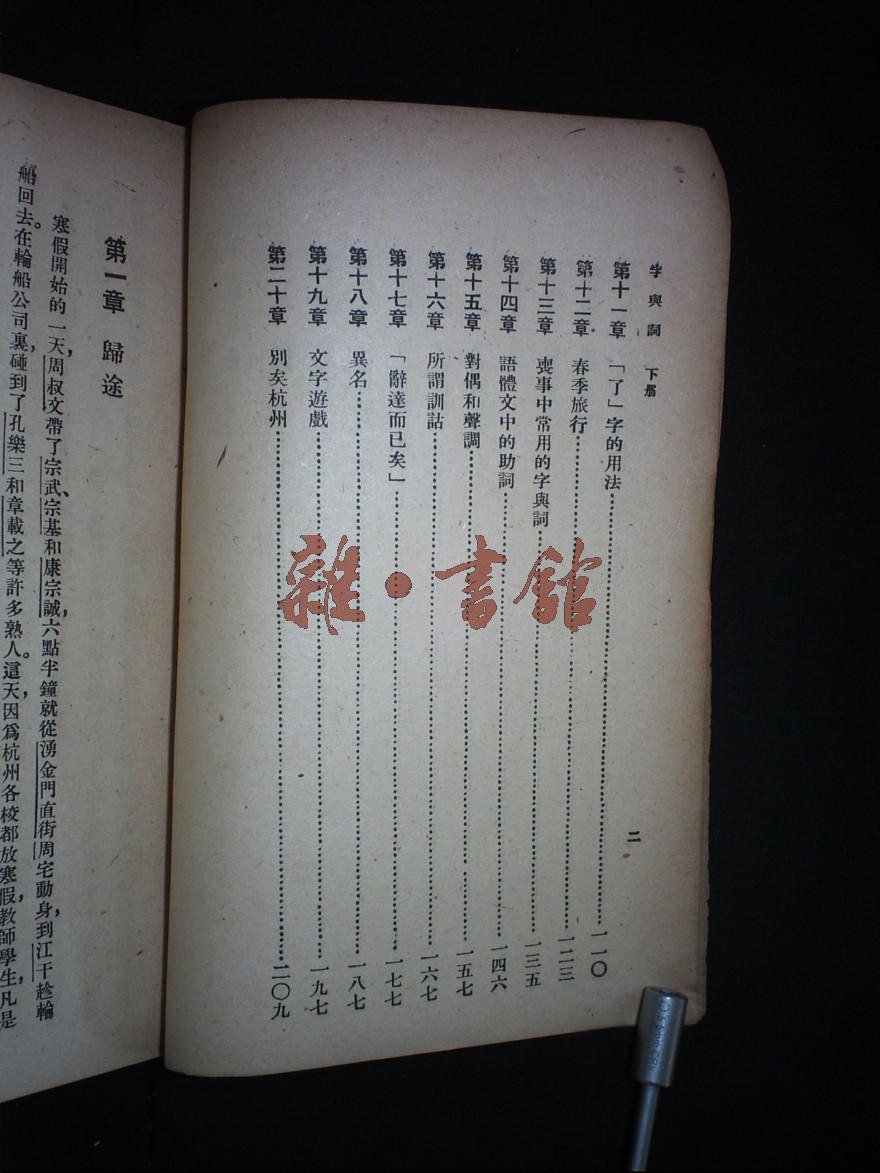 字與詞 下册
第十一章 「了」字的用法……一一〇
第十二章 春季旅行……一二三
第十三章 喪事中常用的字與詞……一三五
第十四章 語體文中的助詞……一四六
第十五章 對偶和聲調……一五七
第十六章 所謂訓詁……一六七
第十七章 「辭達而已矣」……一七七
第十八章 異名……一八七
第十九章 文字遊戲……一九七
第二十章 別矣杭州……二〇九
二
雜·書館
第一章 歸途
寒假開始的一天,周叔文帶了宗武、宗基和康宗誠,六點半鐘就從湧金門直街周宅動身,到江干趁輪
船回去。在輪船公司裏,碰到了孔樂三和章載之等許多熟人。這天,因爲杭州各校都放寒假,教師學生,凡是